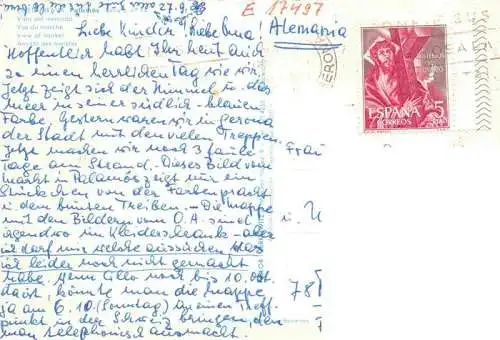 27.9.63
E 17497
Alemania
Vista del mercado
Vue du marché
View of market
Liebe Kinder! Liebe Oma!
Hoffentlich habt Ihr heut auch
so einen herrlichen Tag wie wir.
Jetzt zeigt sich der Himmel u. das
Meer in seiner südlich-blauen
Farbe. Gestern waren wir in Gerona
der Stadt mit den vielen Treppen.
Jetzt machen wir noch 3 faule
Tage am Strand. - Dieses Bild vom
Markt in Palamós zeigt nur ein
Stückchen von der Farbenpracht
in dem bunten Treiben. - Die Mappe
mit den Bildern vom O.A. sind
irgendwo im Kleiderschrank - aber
ich darf mir welche aussuchen was
ich leider noch nicht gemacht
habe. Wenn Otto noch bis 10. Okt.
da ist, könnte man die Mappe
ja am 6.10. (Sonntag) an einen Treff-
punkt in der Schweiz bringen, den
man telephonisch ausmacht.
Frau
i. U
78
ESPAÑA
CORREOS
5
PTAS